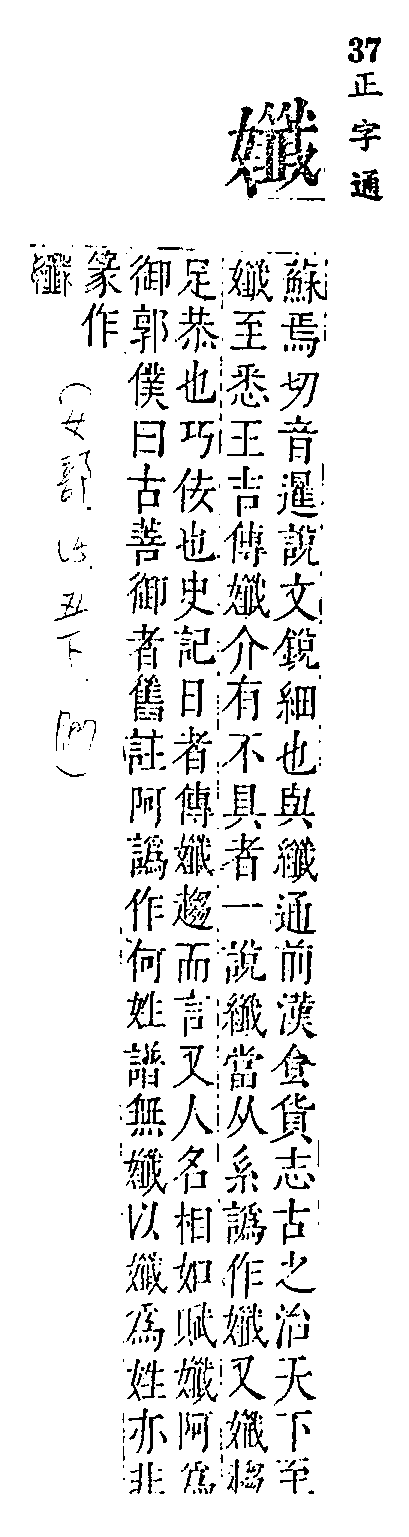 37
正字通
孅
蘇焉切音暹說文銳細也與纖通前漢食貨志古之治天下至
孅至悉王吉傳孅介有不具者一說纖當从糸譌作孅又孅將
足恭也巧佞也史記日者傳孅趨而言又人名相如賦孅阿爲
御郭僕曰古善御者舊註阿譌作何姓譜無孅以孅爲姓亦非
篆作
孅
(女部
丑下